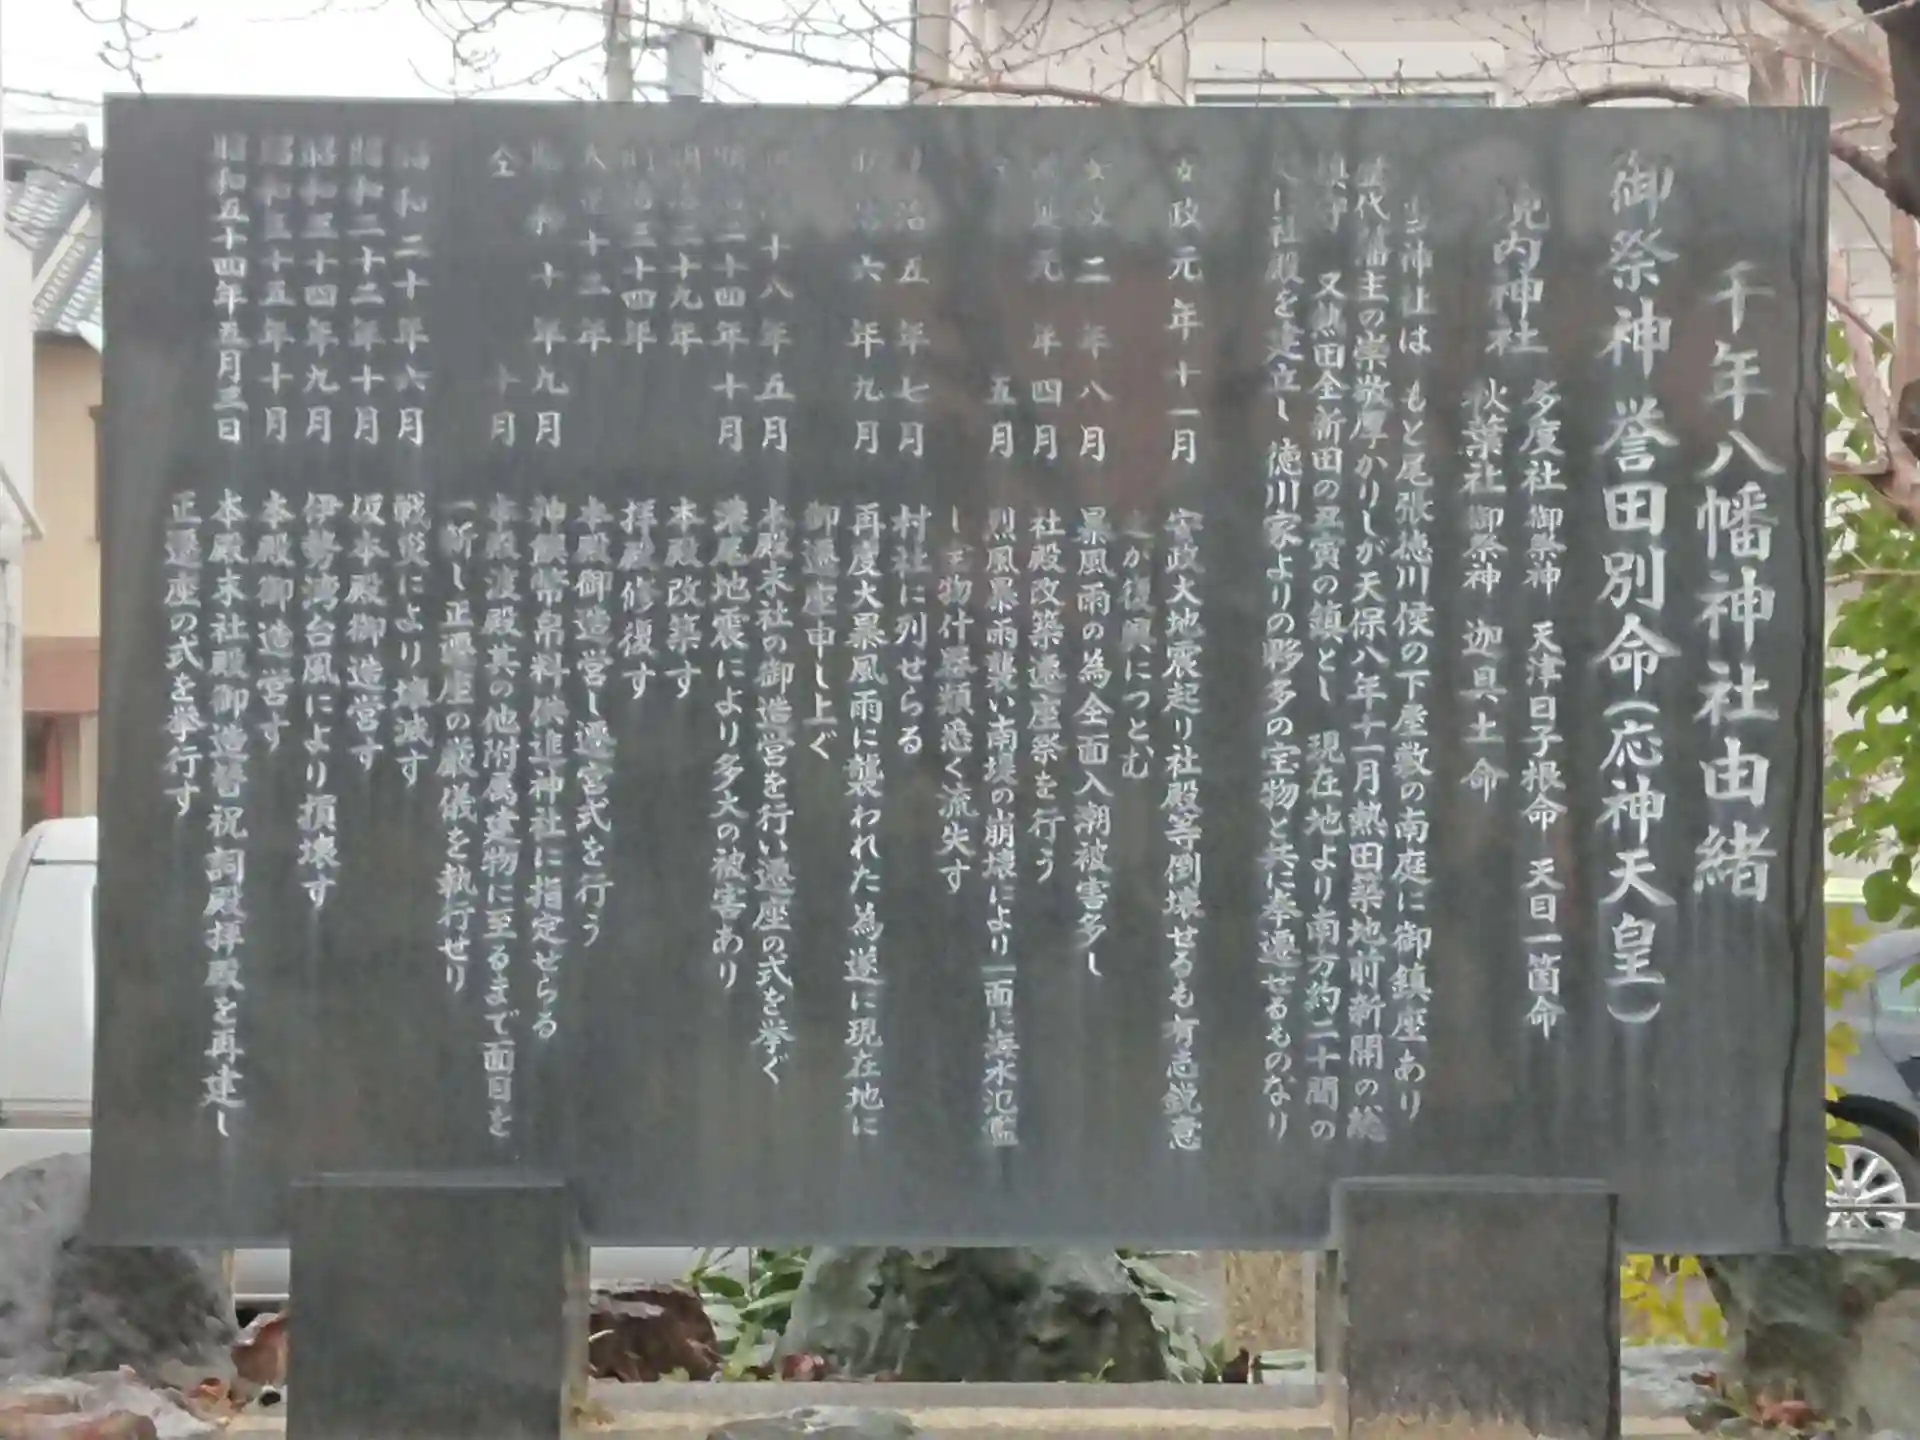 千年八幡神社由緒
御祭神 誉田別命(応神天皇)
境内神社 多度社御祭神 天津日子根命 天目一箇命
秋葉社御祭神 迦具土命
当神社は もと尾張徳川侯の下屋敷の南庭に御鎮座あり
歴代藩主の崇敬厚かりしが天保八年十一月熱田築地前新開の総
鎮守 又熱田全新田の丑寅の鎮とし 現在地より南方約二十間の
社殿を建立し徳川家よりの夥多の宝物と共に奉遷せるものなり
安政元年十一月 安政大地震起り社殿等倒壊せるも有志鋭意
之が復興につとむ
安政二年八月 暴風雨の為全面入潮被害多し
元年四月 社殿改築遷座祭を行う
五月 烈風暴雨襲い南堤の崩壊により一面に海水氾濫
し宝物什器類悉く流失す
明治五年七月 村社に列せらる
明治六年九月 再度大暴風雨に襲われた為遂に現在地に
御遷座申し上ぐ
十八年五月 本殿末社の御造営を行い遷座の式を挙ぐ
明治二十四年十月 濃尾地震により多大の被害あり
明治二十九年 本殿改築す
明治三十四年 拝殿修復す
大正十二年 本殿御造営し遷宮式を行う
昭和十年九月 神饌幣帛料供進神社に指定せらる
仝 十月 本殿渡殿其の他附属建物に至るまで面目を
一新し正遷座の厳儀を執行せり
昭和二十年六月 戦災により壊滅す
昭和二十二年十月 仮本殿御造営す
昭和三十四年九月 伊勢湾台風により損壊す
昭和三十五年十月 本殿御造営す
昭和五十四年五月三日 本殿末社殿御造替祝詞殿拝殿を再建し
正遷座の式を挙行す